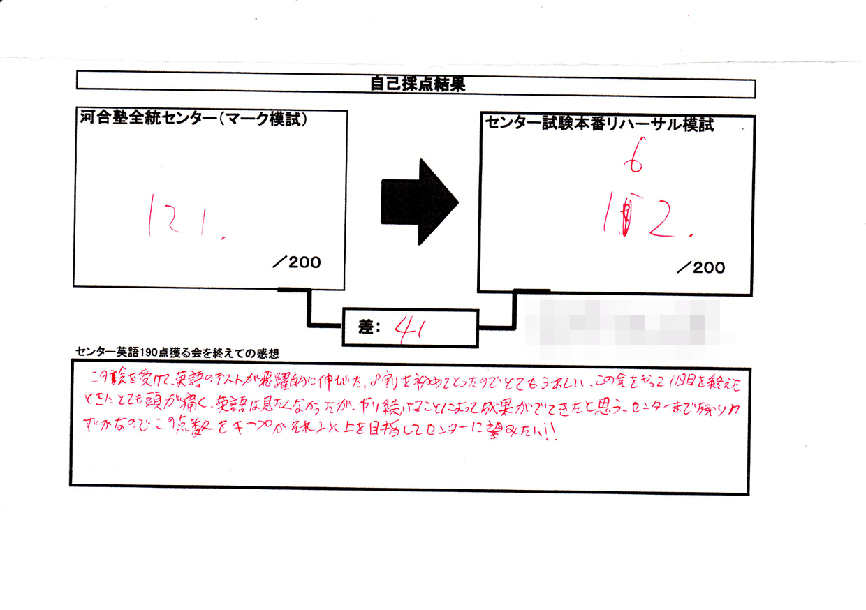 自己採点結果
河合塾全統センター(マーク模試)
121.
/200
センター試験本番リハーサル模試
6
152.
/200
差: 41
センター英語190点獲る会を終えての感想
この会を受けて、英語のテストが飛躍的に伸びた。8割を初めてとったのでとてもうれしい。この会をやって1日目を終えた
ときはとても頭が痛く、英語は見たくなかったが、やり続けることによって成果がでてきたと思う。センターまで残りわ
ずかなのでこの点数をキープかそれ以上を目指してセンターに望みたい!!